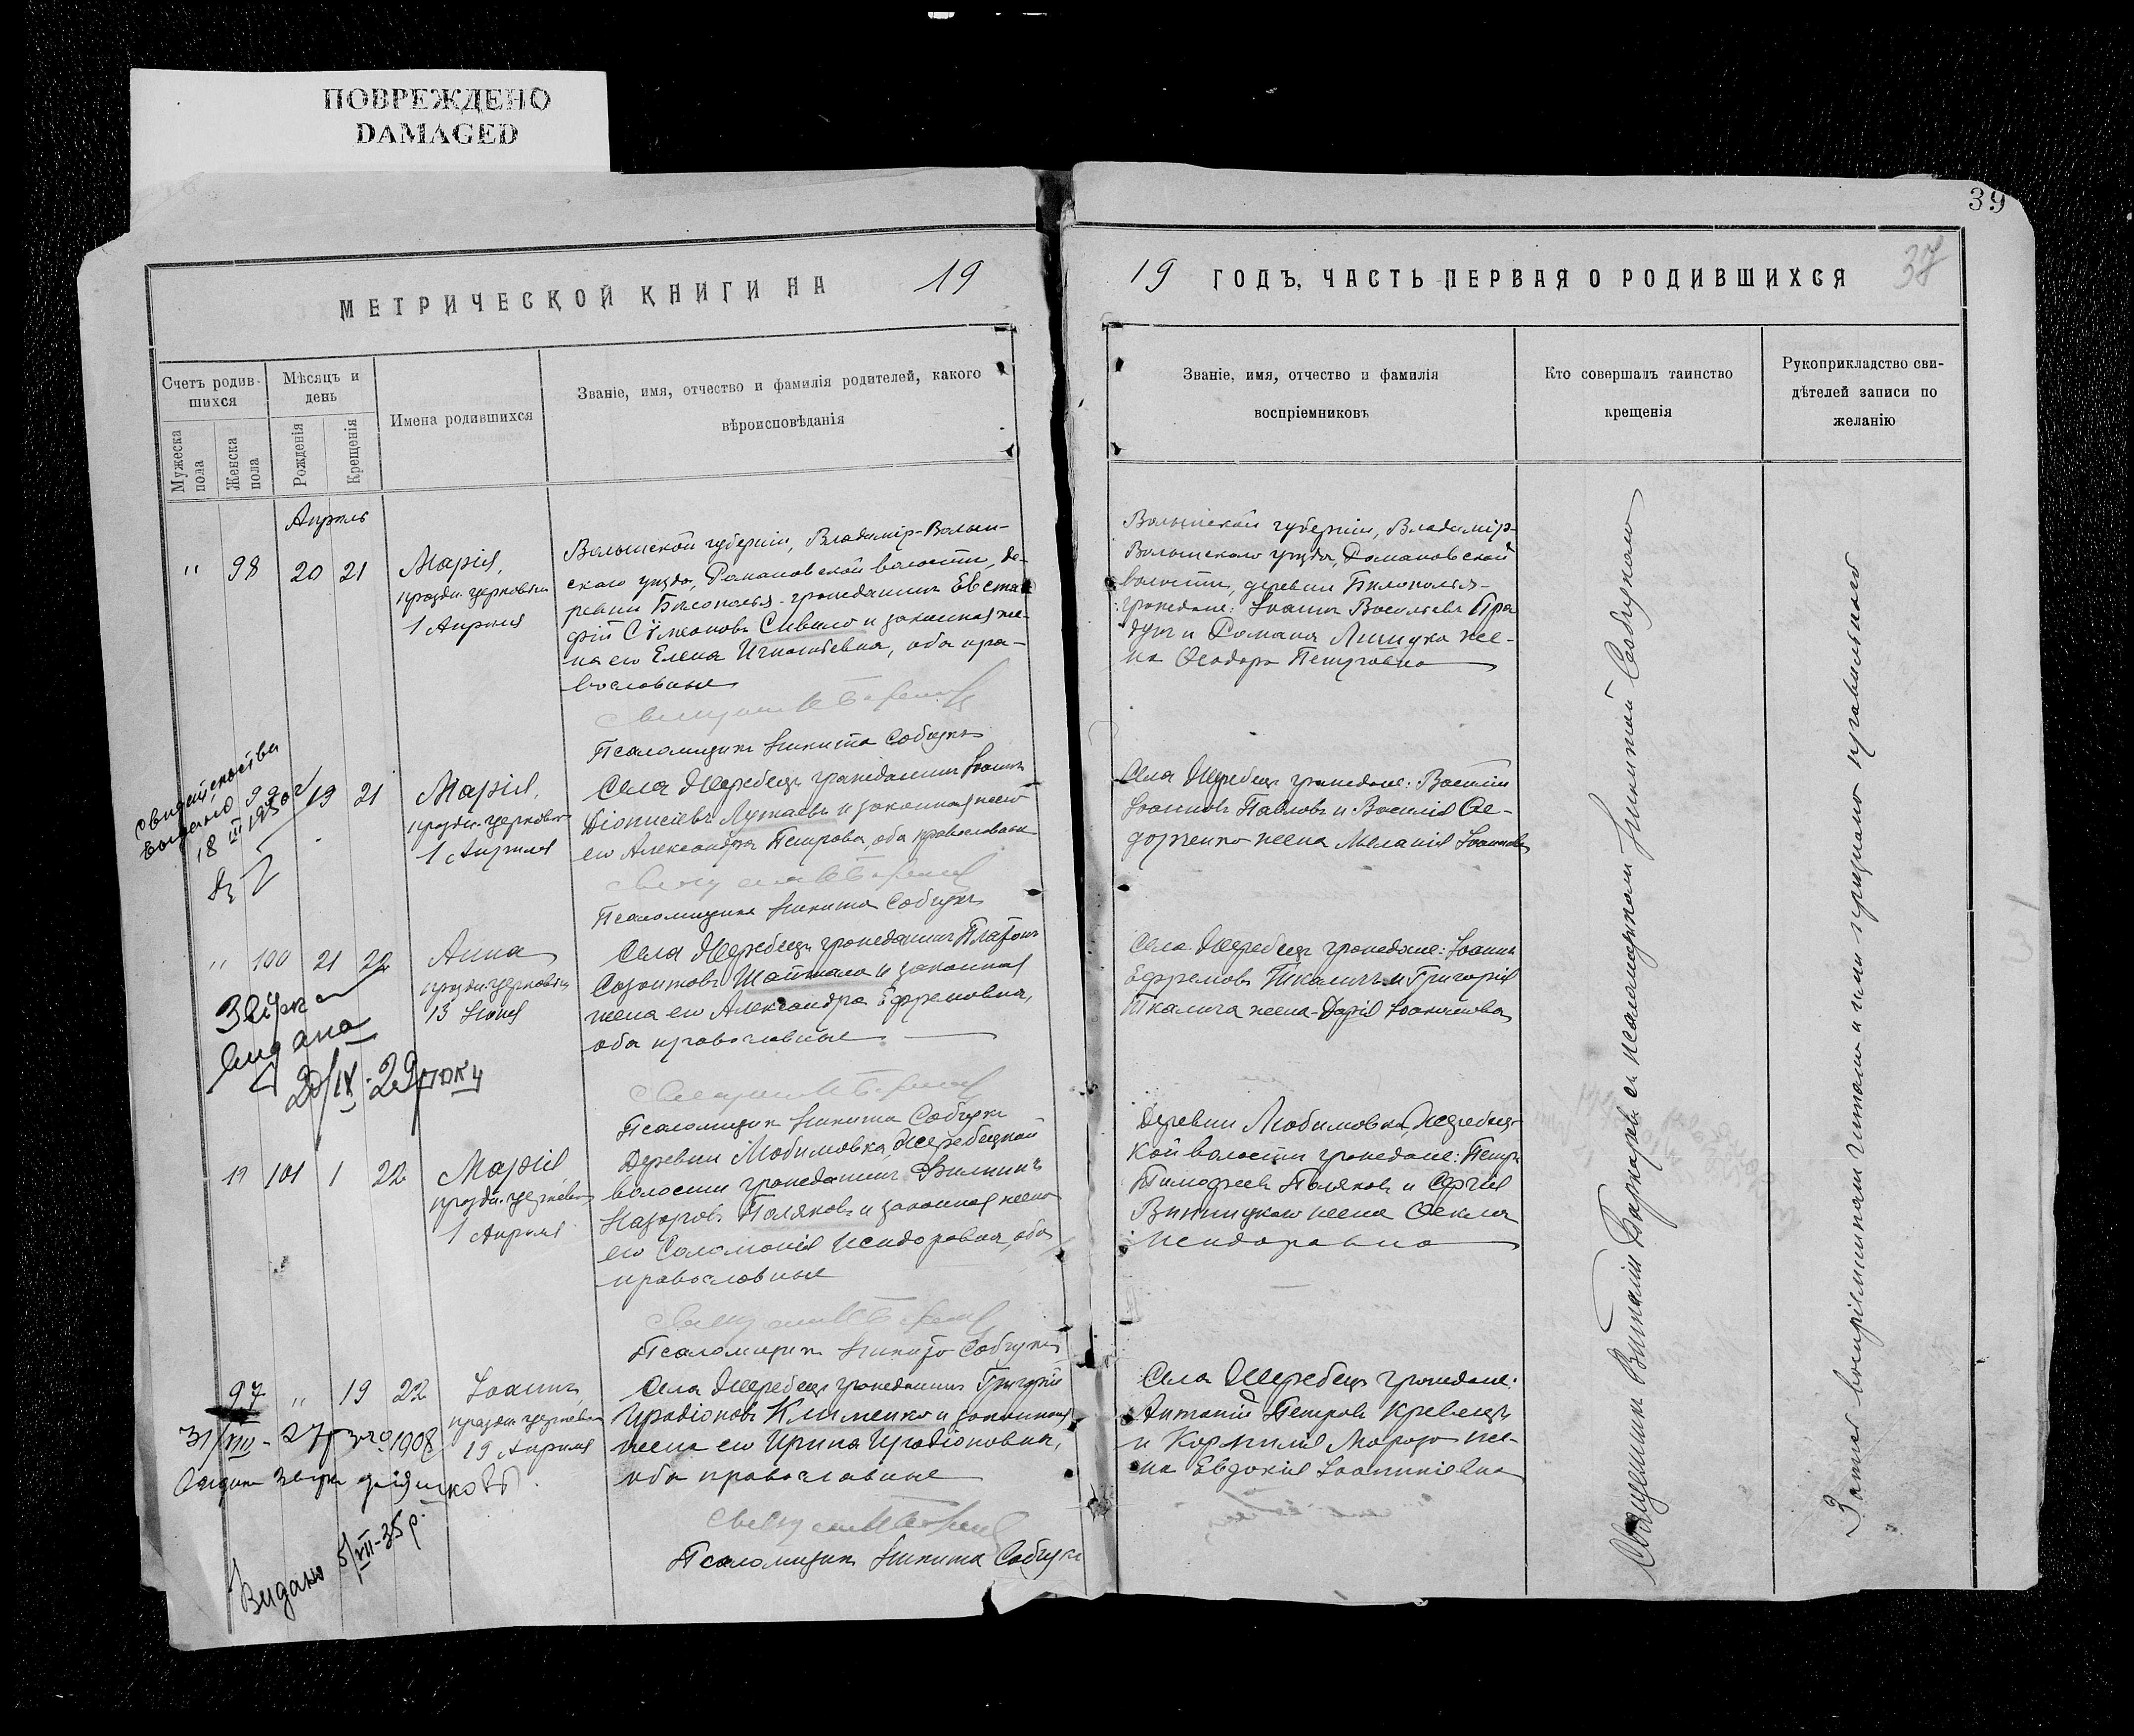 ПОВРЕЖДЕНО
DAMAGED
39
37
МЕТРИЧЕСКОЙ КНИГИ НА 19
19 ГОДЪ, ЧАСТЬ ПЕРВАЯ О РОДИВШИХСЯ
Счетъ родив-
шихся
Мужеска
пола
Женска
пола
Мѣсяцъ и
день
Рожденія
Крещенія
Имена родившихся
Званіе, имя, отчество и фамилія родителей, какого
вѣроисповѣданія
Званіе, имя, отчество и фамилія
воспріемниковъ
Кто совершалъ таинство
крещенія
Рукоприкладство сви-
дѣтелей записи по
желанію
Апрѣль
" 98 20 21
Марія,
праздн. церковью
1 Апрѣля
Волынской губерніи, Владимір-Волын-
скаго уѣзда, Романовской волости, де-
ревни Бѣлополья гражданинъ Евста-
фій Сѵмеоновъ Сивало и законная же-
на его Елена Игнатьевна, оба пра-
вославные
Псаломщикъ Никита Собуцкій
Волынской губерніи, Владимір-
Волынскаго уѣзда, Романовской
волости, деревни Бѣлополья-
граждане: Іоаннъ Васильевъ
и Романа Лищука же-
на Ѳеодора Петровна
свидетельство
выдано
18 III 1930 г
99 19 21
Марія,
праздн. церковью
1 Апрѣля
Села Жеребецъ гражданинъ Іоаннъ
Діонисіевъ Лужаевъ и законная жена
его Александра Петрова, оба православные
Псаломщикъ Никита Собуцкій
Села Жеребецъ граждане: Василій
Іоанновъ Павловъ и Василія Ѳе-
дорченко жена Меланія Іоаннова
" 100 21 22
Анна
праздн. церковью
13 Іюня
Села Жеребецъ гражданинъ Платонъ
Созонтовъ Шаптала и законная
жена его Александра Ефремовна,
оба православные
Псаломщикъ Никита Собуцкій
Села Жеребецъ граждане: Іоаннъ
Ефремовъ Ткаличъ и Григорія
Ткалича жена Дарія Іоакимова
видана
20/IX 29 року
" 101 1 22
Марія
праздн. церковью
1 Апрѣля
Деревни Любимовка, Жеребецкой
волости гражданинъ Филиппъ
Назаровъ Поляковъ и законная жена
его Соломонія Исидоровна, оба
православные
Псаломщикъ Никита Собуцкій
Деревни Любимовка, Жеребец-
кой волости граждане: Петръ
Тимофеевъ Поляковъ и Сергія
Винницкаго жена Ѳекла
Исидоровна
97 " 19 22
Іоаннъ
праздн. церковью
19 Апрѣля
Села Жеребецъ гражданинъ Григорій
Иродіоновъ Клименко и законная
жена его Ирина Иродіоновна,
оба православные
Псаломщикъ Никита Собуцкій
Села Жеребецъ граждане:
Антоній Петровъ Кревецъ
и Корнилія Мороза же-
на Евдокія Іоанникіевна
31/VIII - 27
Видано 5/VII-35 р.
Священникъ Виталій съ псаломщикомъ Никитой Собуцкимъ
Запись воспріемникамъ читана и ими признана правильной